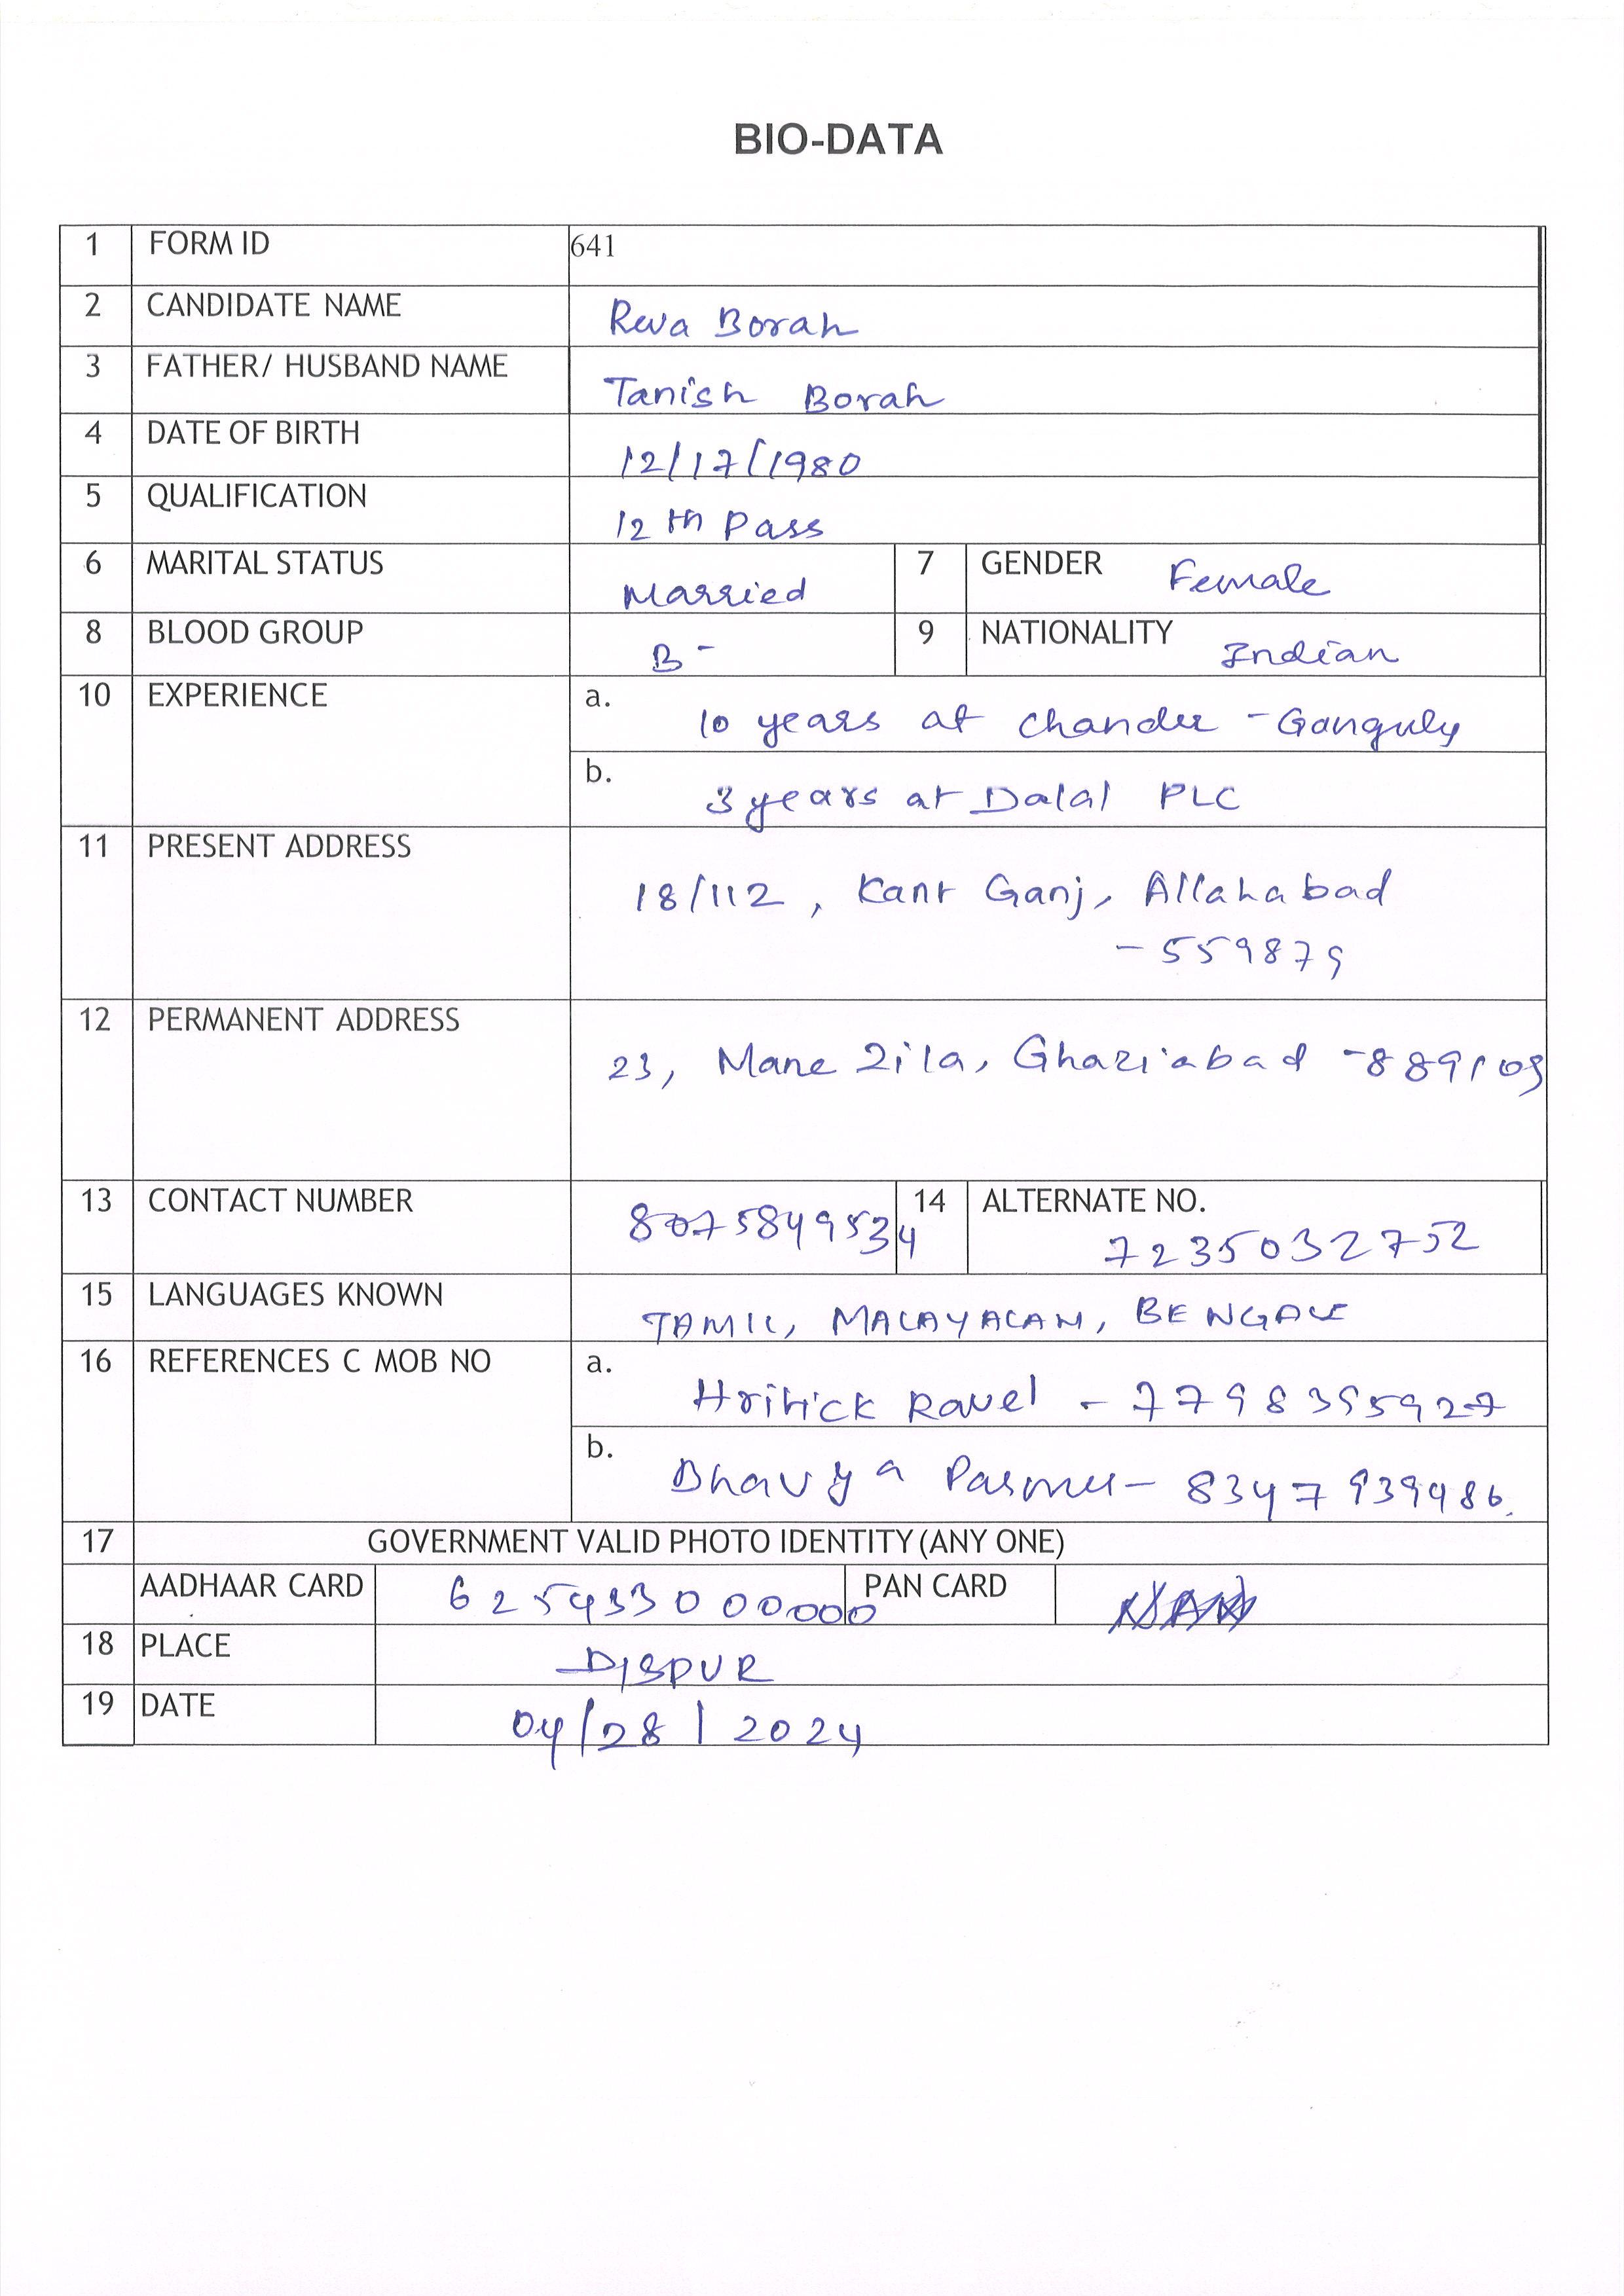 BIO-DATA
1 FORM ID 641
2 CANDIDATE NAME Reva Borah
3 FATHER/ HUSBAND NAME Tanish Borah
4 DATE OF BIRTH 12/17/1980
5 QUALIFICATION 12th Pass
6 MARITAL STATUS Married 7 GENDER Female
8 BLOOD GROUP B- 9 NATIONALITY Indian
10 EXPERIENCE a. 10 years at Chander - Ganguly
b. 3 years at Dalal PLC
11 PRESENT ADDRESS
18/112, Kant Ganj, Allahabad
- 559879
12 PERMANENT ADDRESS
23, Mane Zila, Ghaziabad - 889109
13 CONTACT NUMBER 8075849534 14 ALTERNATE NO.
7235032752
15 LANGUAGES KNOWN TAMIL, MALAYALAM, BENGALI
16 REFERENCES C MOB NO a. Hritick Ravel - 7798395927
b. Bhavya - 8347939486.
17 GOVERNMENT VALID PHOTO IDENTITY(ANY ONE)
AADHAAR CARD 625933000000 PAN CARD
18 PLACE DISPUR
19 DATE 04/28/2024